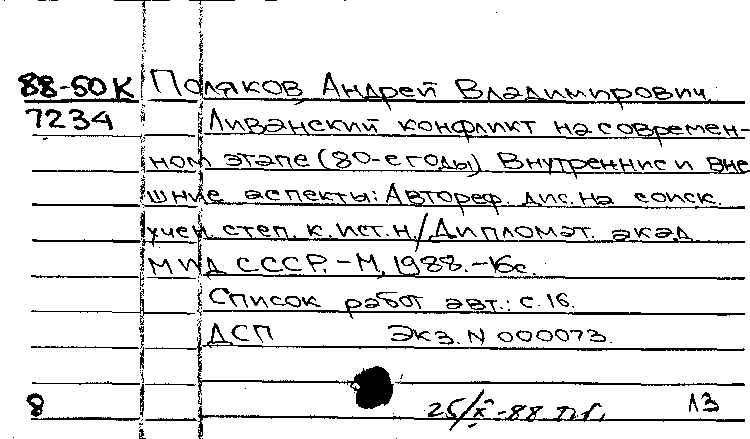 88-50К Поляков, Андрей Владимирович.
7234 Ливанский конфликт на современ-
ном этапе (80-е годы). Внутренние и вне
шние аспекты: Автореф. дис. на соиск.
учен. степ. к. ист. н. / Дипломат. акад.
МИД СССР. - М, 1988. - 16с.
Список работ авт.: с. 16.
ДСП Экз. N 000073.
8 13